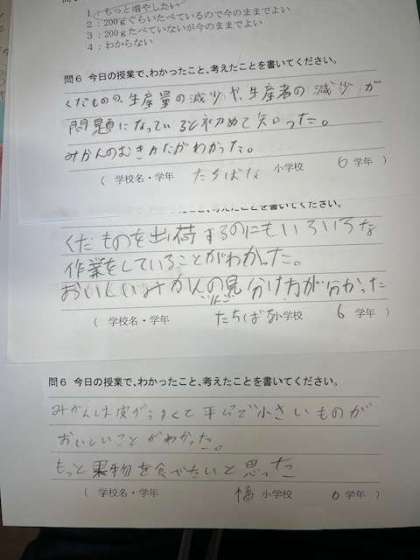 1：もっと増やしたい
2：200gぐらいたべているので今のままでよい
3：200gたべていないが今のままでよい
4：わからない
問6 今日の授業で、わかったこと、考えたことを書いてください。
くだものの生産量の減少や、生産者の減少が
問題になっていると初めて知った。
みかんのむきかたがわかった。
（ 学校名・学年 たちばな 小学校 6 学年 ）
くだものを出荷するのにもいろいろな
作業をしていることがわかった。
おいしいみかんの見分け方が分かった
（ 学校名・学年 たちばな小学校 6 学年 ）
問6 今日の授業で、わかったこと、考えたことを書いてください。
みかんは皮がうすくて平らで小さいものが
おいしいことがわかった。
もっと果物を食べたいと思った
（ 学校名・学年 橘 小学校 6 学年 ）